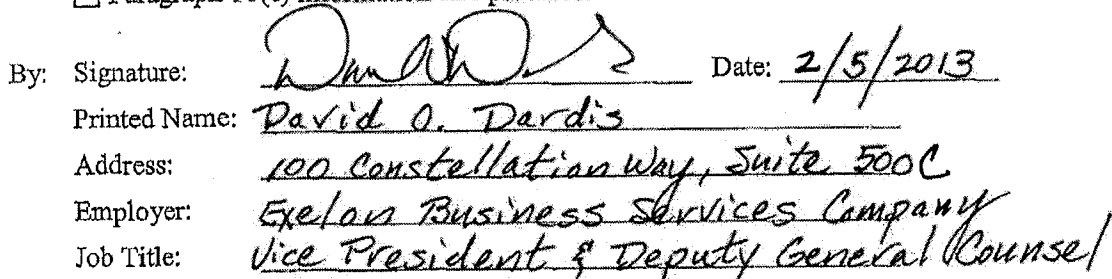 By: Signature: Date: 2/5/2013
Printed Name: David O. Dardis
Address: 100 Constellation Way, Suite 500C
Employer: Exelon Business Services Company
Job Title: Vice President & Deputy General Counsel